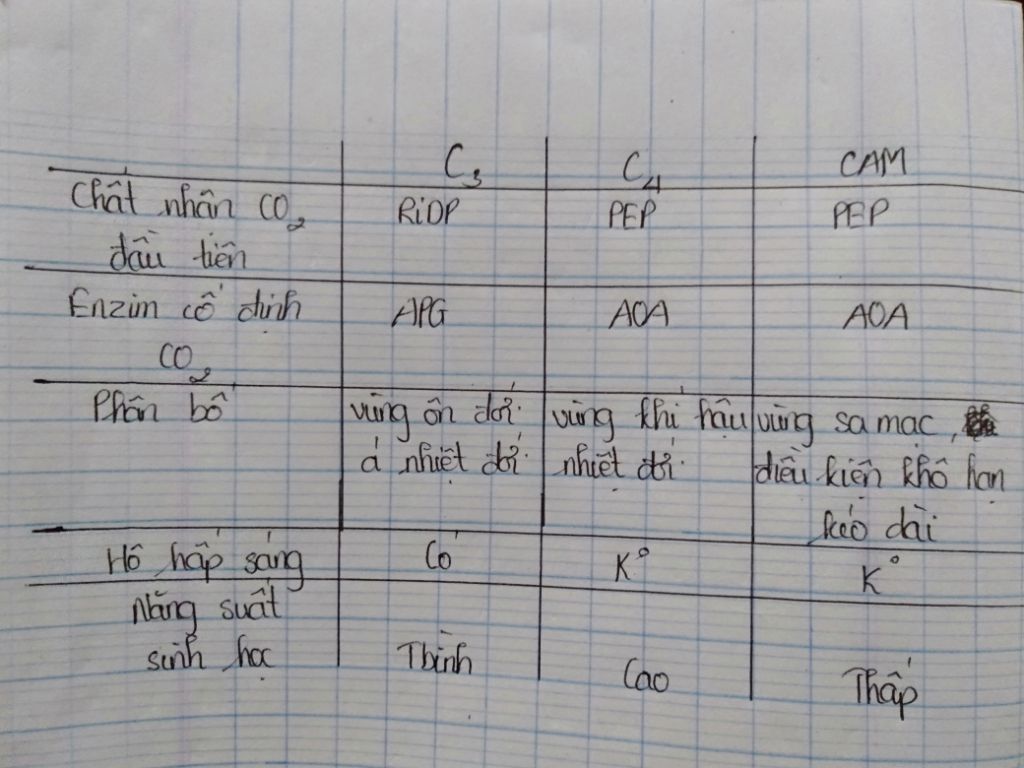 C₃ C₄ CAM
Chất nhận CO₂ RiDP PEP PEP
đầu tiên
Enzim cố định APG AOA AOA
CO₂
Phân bố vùng ôn đới. vùng khí hậu vùng sa mạc,
á nhiệt đới. nhiệt đới. điều kiện khô hạn
kéo dài
Hô hấp sáng Có K° K°
Năng suất
sinh học Tbình Cao Thấp